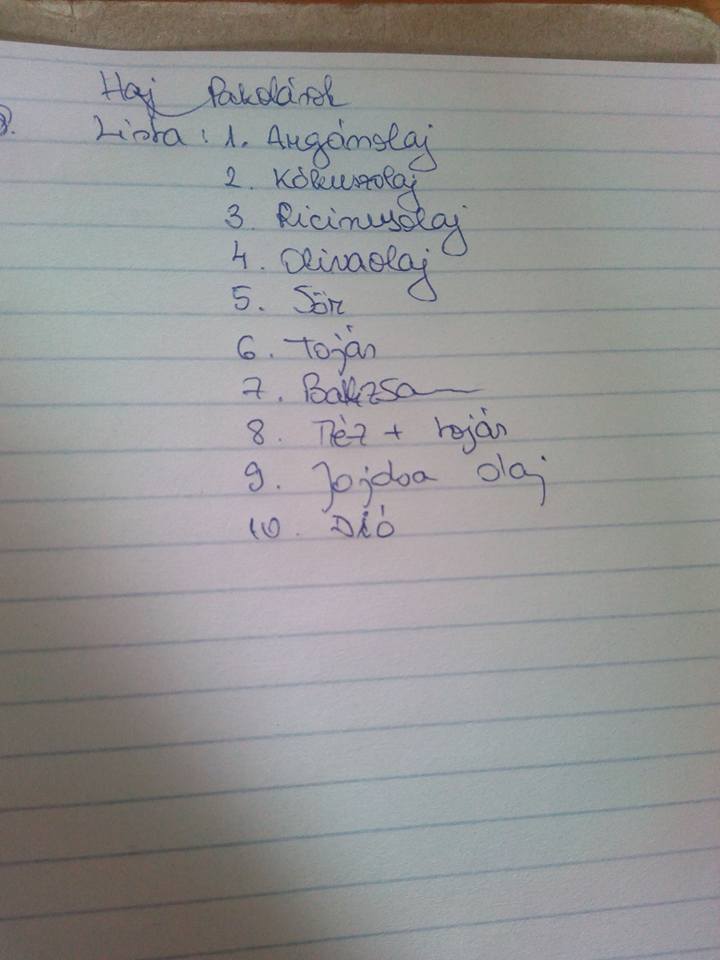 Haj Pakolások
Lista: 1. Argánolaj
2. Kókuszolaj
3. Ricinusolaj
4. Olivaolaj
5. Sör
6. Tojás
7. Balzsam
8. Méz + tojás
9. Jojoba olaj
10. Dió